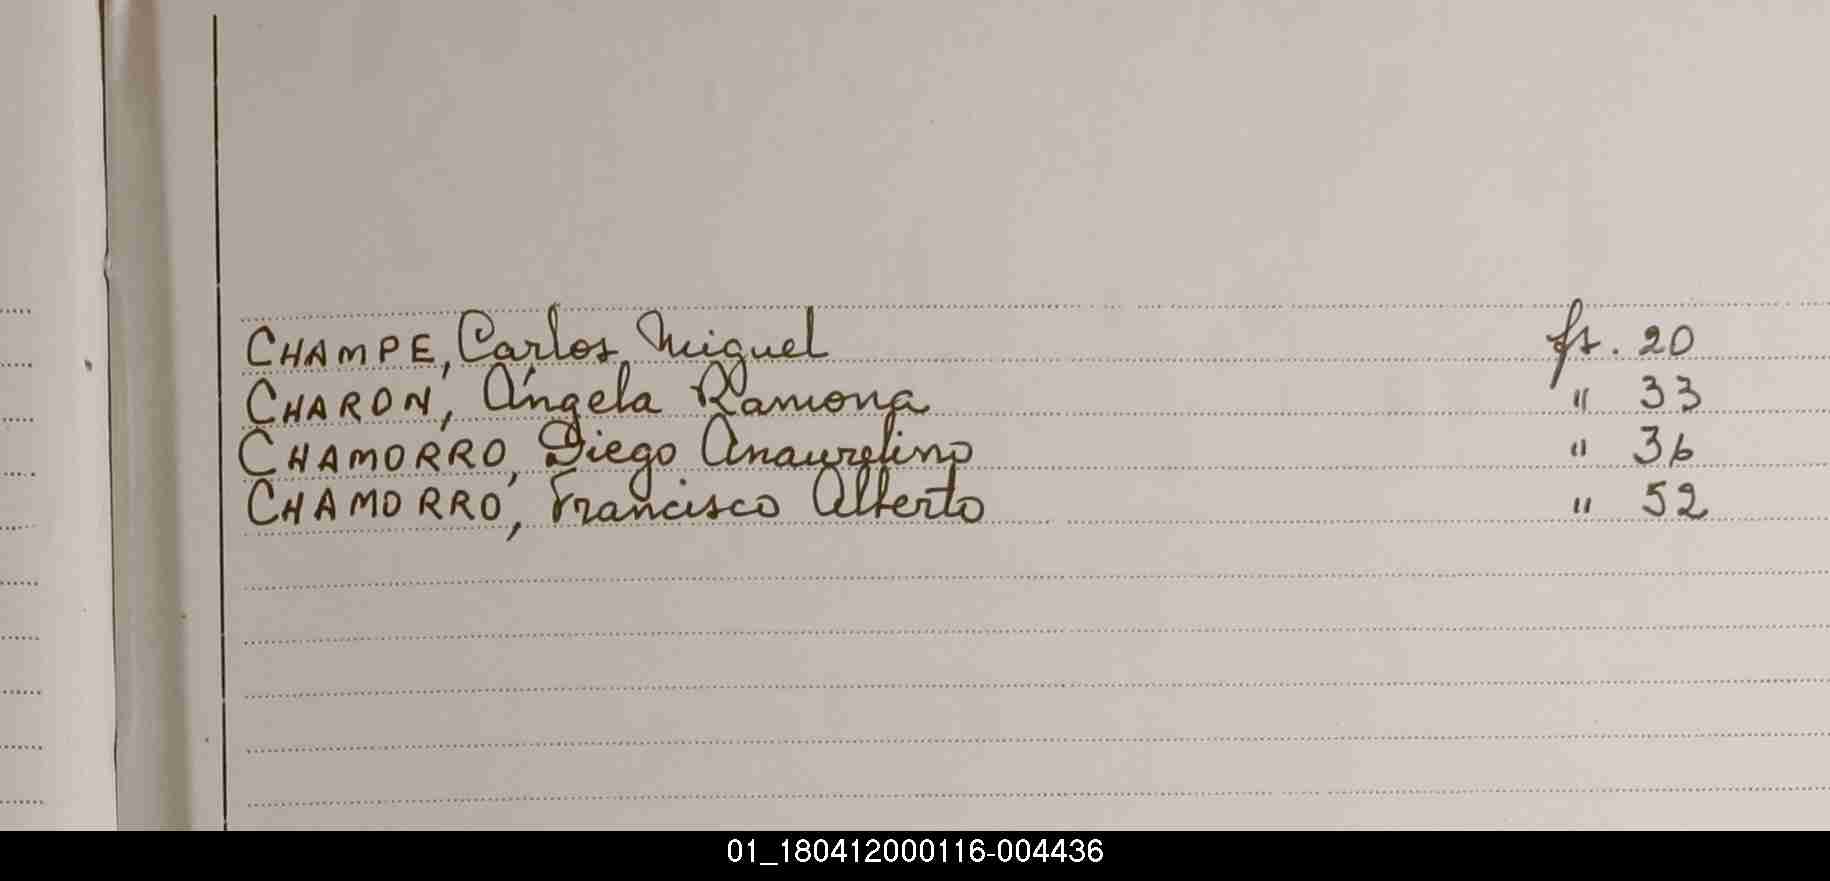 CHAMPE, Carlos Miguel ft. 20
CHARON, Ángela Ramona " 33
CHAMORRO, Diego Anaurelino " 36
CHAMORRO, Francisco Alberto " 52
01_180412000116-004436